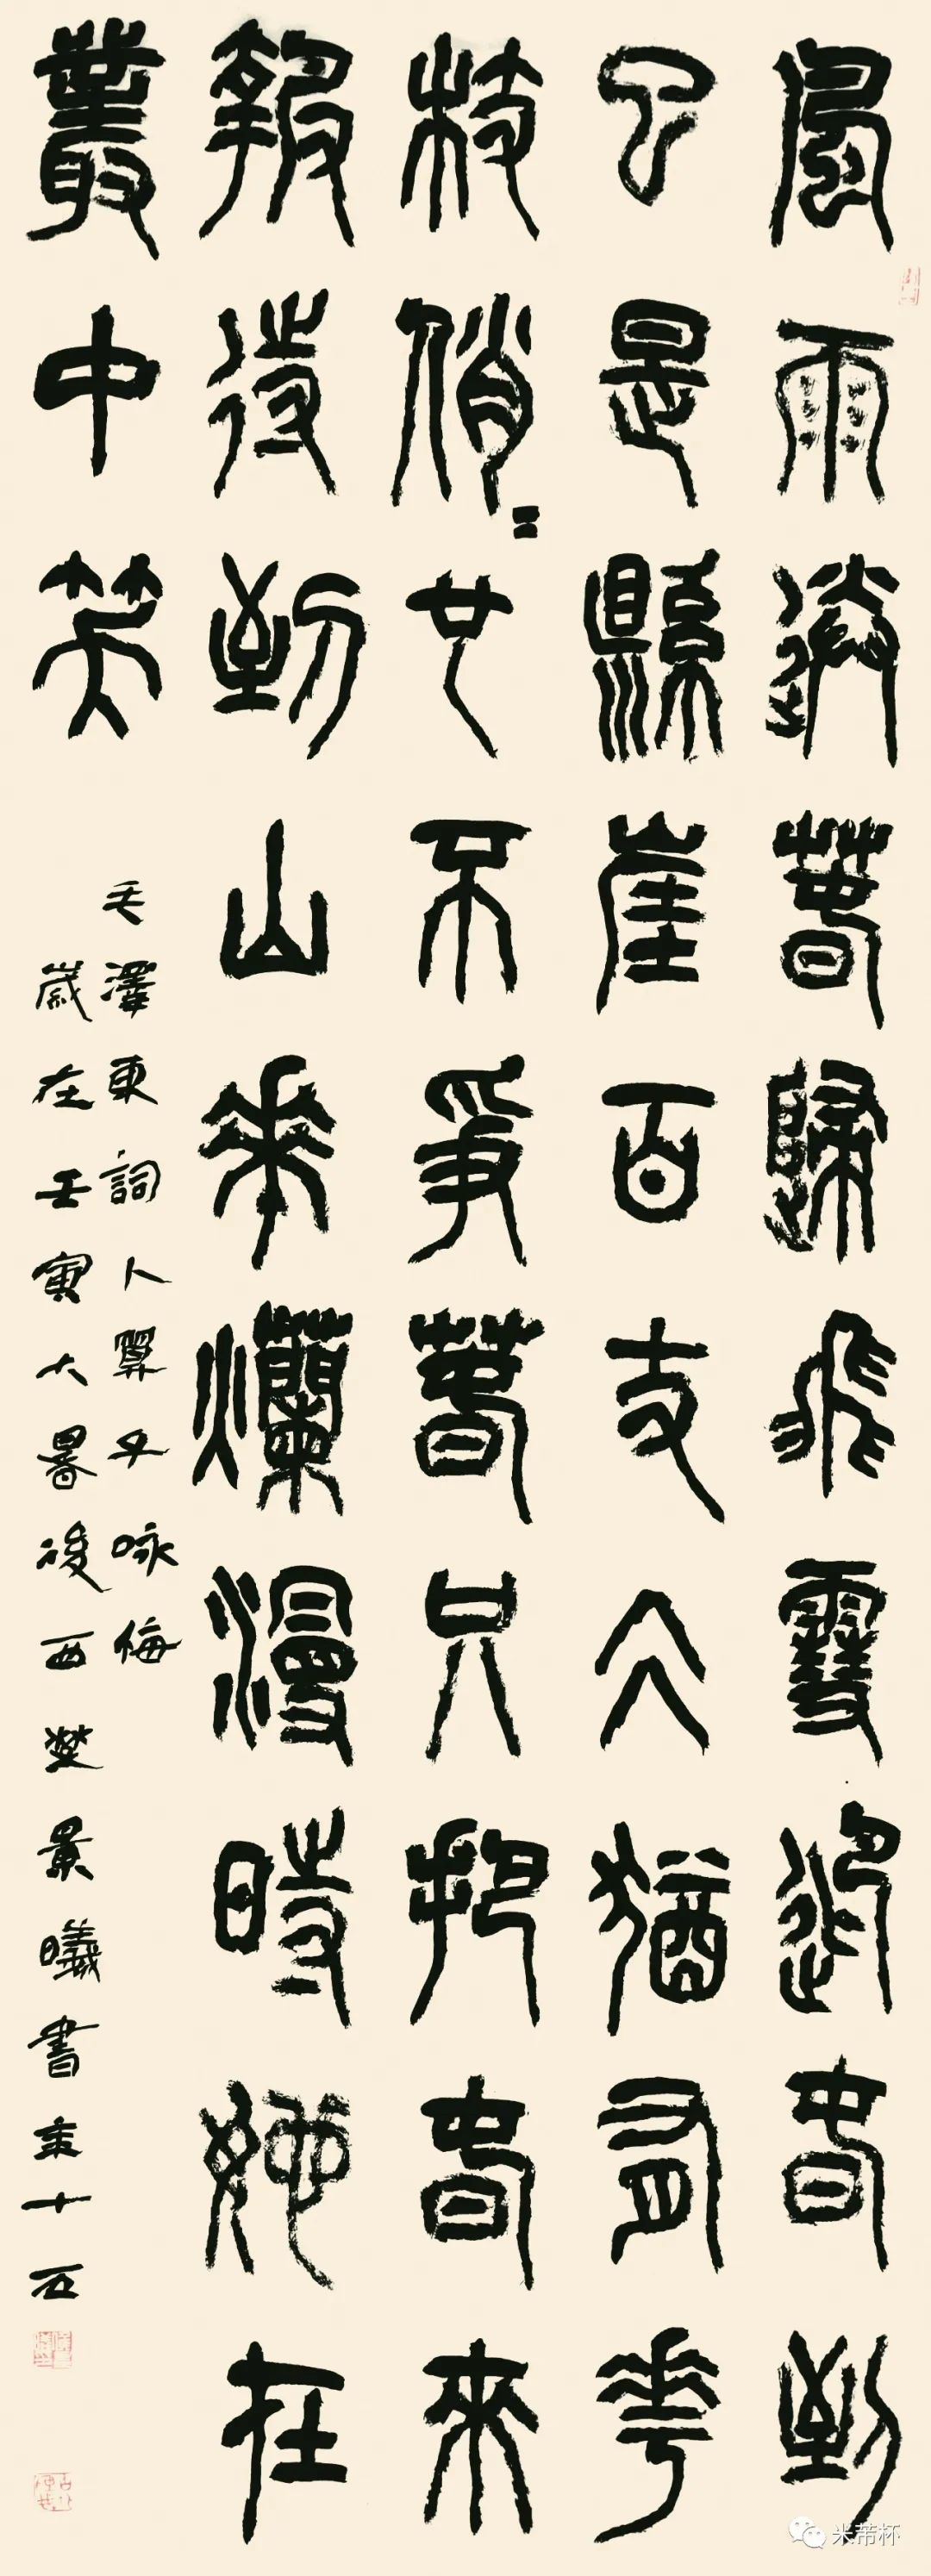 風雨送春歸飛雪迎春到
已是縣崖百丈仌猶有花
枝俏〻也不爭春只把春來
報待到山花爛漫時她在
叢中笑
毛澤東詞卜算子咏梅
歲在壬寅大暑後西楚景曦書
米芾杯